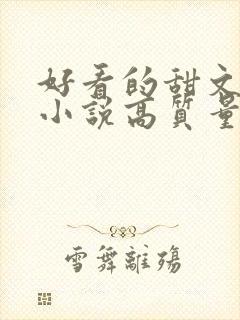 好看的甜文
小說高質量
雪舞離殤